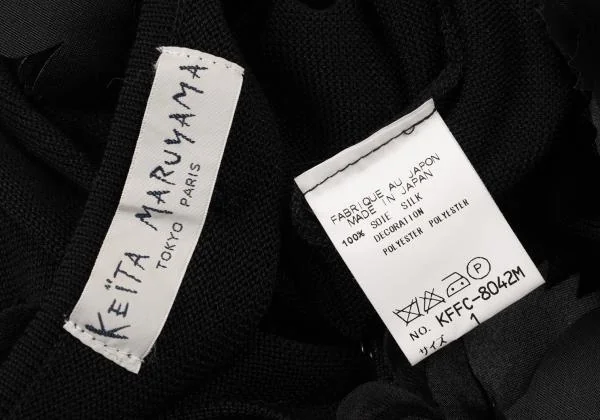 KEÏTA MARUYAMA
TOKYO PARIS
FABRIQUE AU JAPON
MADE IN JAPAN
100% SOIE SILK
DECORATION
POLYESTER POLYESTER
P
NO. KFFC-8042M
サイズ 1